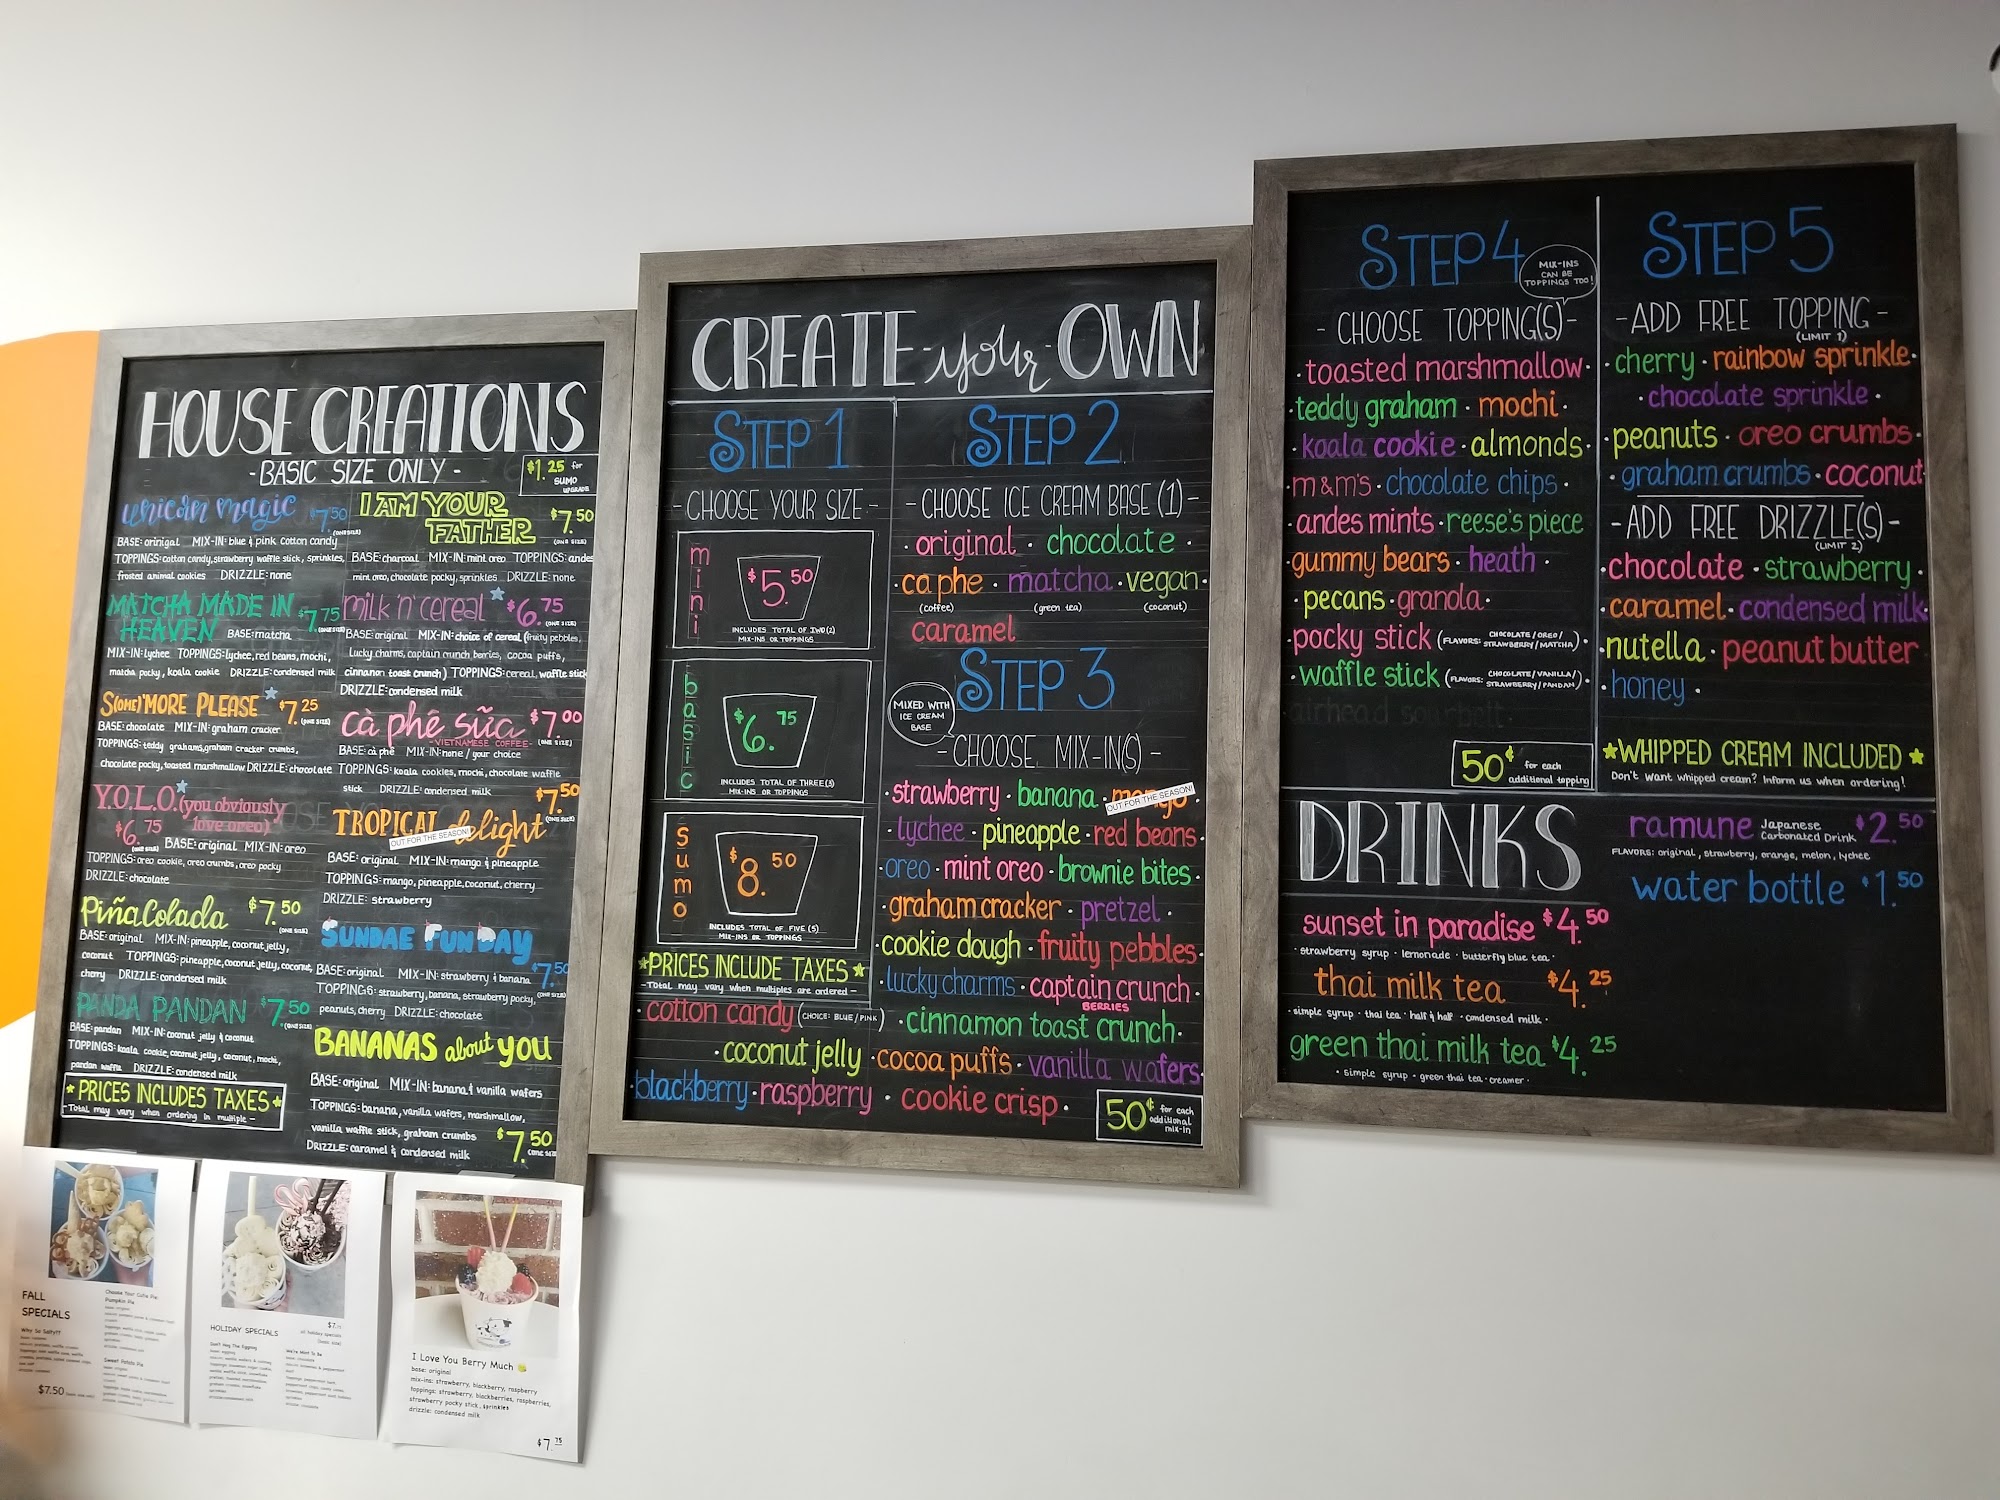 HOUSE CREATIONS
- BASIC SIZE ONLY -
$1.25 for
SUMO
UPGRADE
unicorn magic $7.50
(ONE SIZE)
BASE: orinigal MIX-IN: blue & pink cotton candy
TOPPINGS: cotton candy, strawberry waffle stick, sprinkles,
frosted animal cookies DRIZZLE: none
MATCHA MADE IN
HEAVEN $7.75
(ONE SIZE)
BASE: matcha
MIX-IN: lychee TOPPINGS: lychee, red beans, mochi,
matcha pocky, koala cookie DRIZZLE: condensed milk
S(OME)'MORE PLEASE $7.25
(ONE SIZE)
BASE: chocolate MIX-IN: graham cracker
TOPPINGS: teddy grahams, graham cracker crumbs,
chocolate pocky, toasted marshmallow DRIZZLE: chocolate
Y.O.L.O. (you obviously
love oreo)
$6.75
(ONE SIZE)
BASE: original MIX-IN: oreo
TOPPINGS: oreo cookie, oreo crumbs, oreo pocky
DRIZZLE: chocolate
Piña Colada $7.50
(ONE SIZE)
BASE: original MIX-IN: pineapple, coconut jelly,
coconut TOPPINGS: pineapple, coconut jelly, coconut,
cherry DRIZZLE: condensed milk
PANDA PANDAN $7.50
(ONE SIZE)
BASE: pandan MIX-IN: coconut jelly & coconut
TOPPINGS: koala cookie, coconut jelly, coconut, mochi,
pandan waffle DRIZZLE: condensed milk
★ PRICES INCLUDES TAXES ★
- Total may vary when ordering in multiple -
I AM YOUR
FATHER $7.50
(ONE SIZE)
BASE: charcoal MIX-IN: mint oreo TOPPINGS: andes
mint oreo, chocolate pocky, sprinkles DRIZZLE: none
milk 'n' cereal $6.75
(ONE SIZE)
BASE: original MIX-IN: choice of cereal (fruity pebbles,
lucky charms, captain crunch berries, cocoa puffs,
cinnamon toast crunch) TOPPINGS: cereal, waffle stick
DRIZZLE: condensed milk
cà phê sữa $7.00
- VIETNAMESE COFFEE - (ONE SIZE)
BASE: cà phê MIX-IN: none / your choice
TOPPINGS: koala cookies, mochi, chocolate waffle
stick DRIZZLE: condensed milk
TROPICAL delight $7.50
(ONE SIZE)
OUT FOR THE SEASON!
BASE: original MIX-IN: mango & pineapple
TOPPINGS: mango, pineapple, coconut, cherry
DRIZZLE: strawberry
SUNDAE FUNDAY
BASE: original MIX-IN: strawberry & banana $7.50
(ONE SIZE)
TOPPINGS: strawberry, banana, strawberry pocky,
peanuts, cherry DRIZZLE: chocolate
BANANAS about you
BASE: original MIX-IN: banana & vanilla wafers
TOPPINGS: banana, vanilla wafers, marshmallow,
vanilla waffle stick, graham crumbs
DRIZZLE: caramel & condensed milk $7.50
(ONE SIZE)
CREATE - your - OWN
STEP 1
- CHOOSE YOUR SIZE -
mini
$5.50
INCLUDES TOTAL OF TWO (2)
MIX-INS OR TOPPINGS
basic
$6.75
INCLUDES TOTAL OF THREE (3)
MIX-INS OR TOPPINGS
sumo
$8.50
INCLUDES TOTAL OF FIVE (5)
MIX-INS OR TOPPINGS
★PRICES INCLUDE TAXES★
- Total may vary when multiples are ordered -
STEP 2
- CHOOSE ICE CREAM BASE (1) -
· original · chocolate ·
· ca phe · matcha · vegan ·
(coffee) (green tea) (coconut)
caramel
STEP 3
MIXED WITH
ICE CREAM
BASE
- CHOOSE MIX-IN(S) -
· strawberry · banana · mango ·
OUT FOR THE SEASON!
· lychee · pineapple · red beans ·
· oreo · mint oreo · brownie bites ·
· graham cracker · pretzel ·
· cookie dough · fruity pebbles ·
· lucky charms · captain crunch ·
BERRIES
· cotton candy (CHOICE: BLUE / PINK) · cinnamon toast crunch ·
· coconut jelly · cocoa puffs · vanilla wafers ·
· blackberry · raspberry · cookie crisp ·
50¢ for each
additional
mix-in
STEP 4
MIX-INS
CAN BE
TOPPINGS TOO!
- CHOOSE TOPPING(S) -
· toasted marshmallow ·
· teddy graham · mochi ·
· koala cookie · almonds ·
· m&m's · chocolate chips ·
· andes mints · reese's piece
· gummy bears · heath ·
· pecans · granola ·
· pocky stick (FLAVORS: CHOCOLATE / OREO /
STRAWBERRY / MATCHA) ·
· waffle stick (FLAVORS: CHOCOLATE / VANILLA /
STRAWBERRY / PANDAN) ·
50¢ for each
additional topping
STEP 5
- ADD FREE TOPPING -
(LIMIT 1)
· cherry · rainbow sprinkle ·
· chocolate sprinkle ·
· peanuts · oreo crumbs ·
· graham crumbs · coconut ·
- ADD FREE DRIZZLE(S) -
(LIMIT 2)
· chocolate · strawberry ·
· caramel · condensed milk ·
· nutella · peanut butter
· honey ·
★WHIPPED CREAM INCLUDED★
Don't want whipped cream? Inform us when ordering!
DRINKS
sunset in paradise $4.50
· strawberry syrup · lemonade · butterfly blue tea ·
thai milk tea $4.25
· simple syrup · thai tea · half & half · condensed milk ·
green thai milk tea $4.25
· simple syrup · green thai tea · creamer ·
ramune Japanese
Carbonated Drink $2.50
FLAVORS: original, strawberry, orange, melon, lychee
water bottle $1.50
FALL
SPECIALS
Why So Salty??
$7.50
Choose Your Cutie Pie
Pumpkin Pie
Sweet Potato Pie
HOLIDAY SPECIALS
$7.75
all holiday specials
Don't Hog The Eggnog
We're Mint To Be
I Love You Berry Much
base: original
mix-ins: strawberry, blackberry, raspberry
toppings: strawberry, blackberries, raspberries,
strawberry pocky stick, sprinkles
drizzle: condensed milk
$7.75